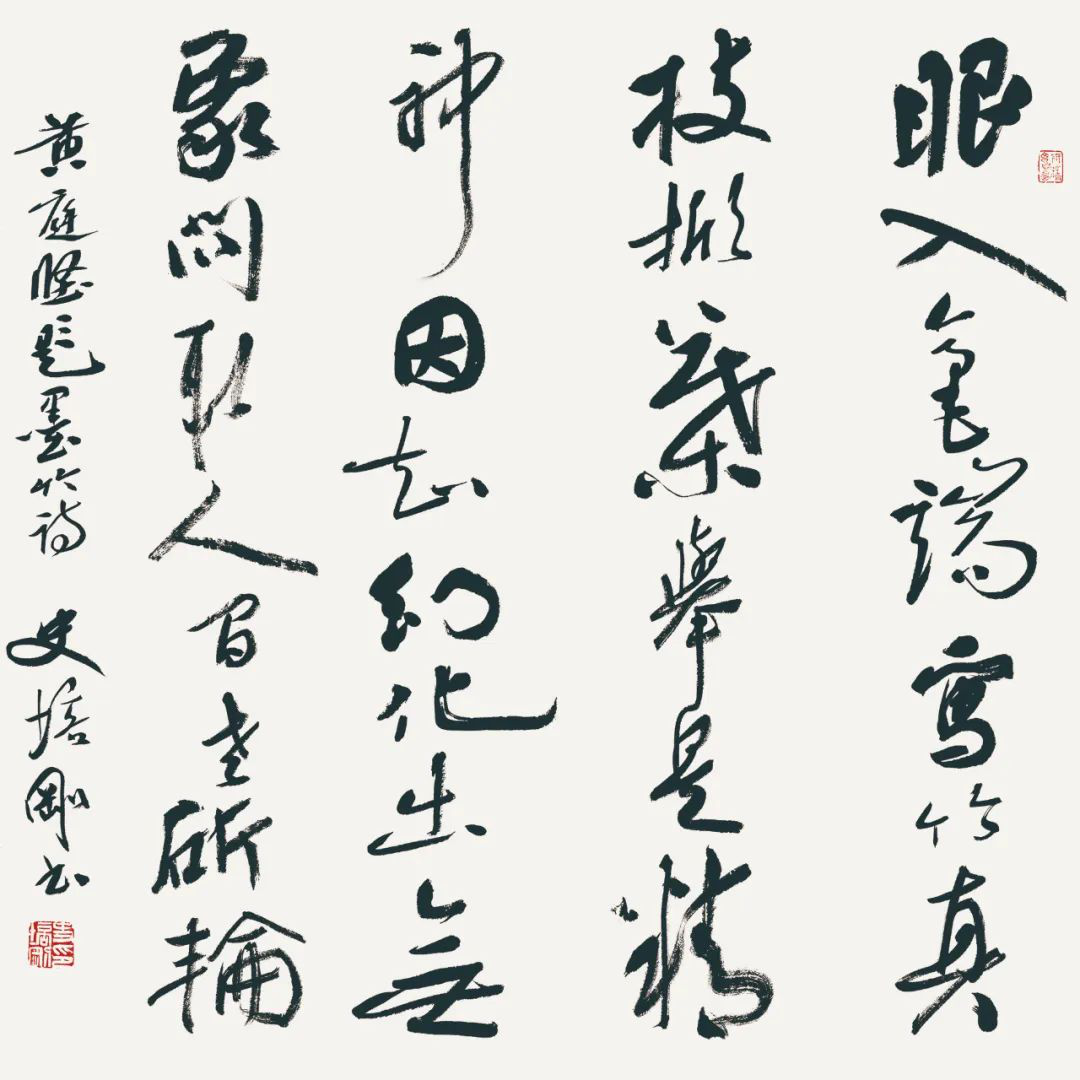 眼入毫端寫竹真
枝掀葉舉是精
神因知幻化出無
象問取人間老斫輪
黄庭堅題墨竹詩 史培剛书
史培剛印